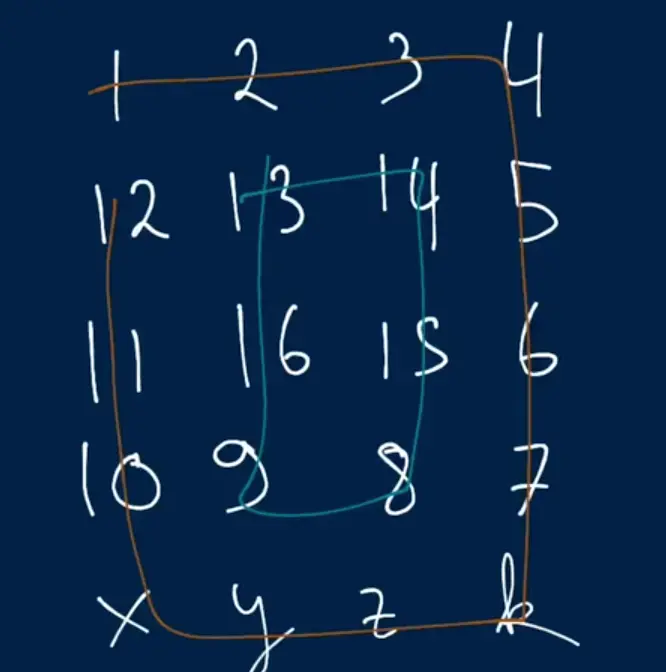 1 2 3 4
12 13 14 5
11 16 15 6
10 9 8 7
x y z k